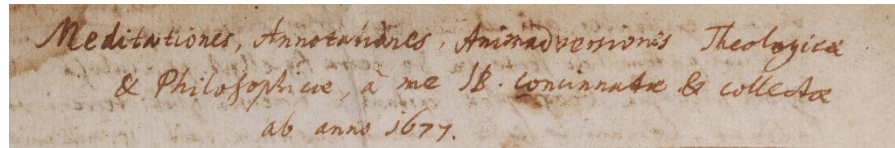 Meditationes, Annotationes, Animadversiones Theologicæ
& Philosophicæ, à me JB. concinnatæ & collectæ
ab anno 1677.